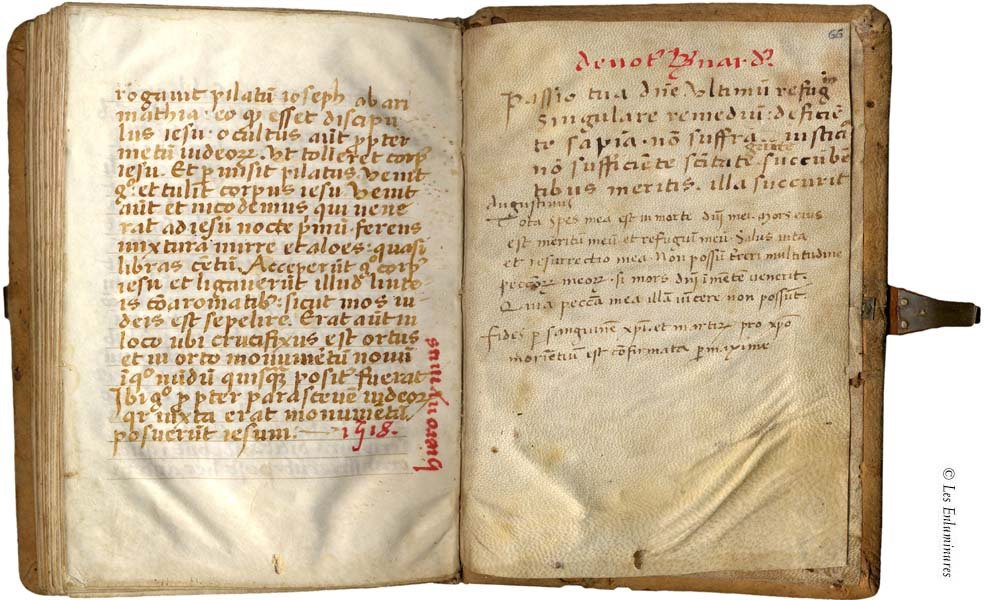 rogavit pilatū ioseph ab ari
mathia· eo ꝙ esset discipu
lus iesu· ocultus aūt ꝓpter
metū iudeoꝝ. Vt tolleret corpꝰ
iesu. Et ꝑmisit pilatus. Venit
gͦ. et tulit corpus iesu. Venit
aūt et nicodemus qui vene
rat ad iesū nocte pͥmū· ferens
mixturā mirre et aloes· quasi
libras cētū. Acceperūt gͦ corpꝰ
iesu et ligaverūt illud linte
is cū aromatibꝰ· sicut mos iu
deis est sepelire. Erat aūt in
loco ubi crucifixus est ortus
et in orto monumētū novū
ī qͦ nūdū quisqꝫ positꝰ fuerat
Ibi gͦ ꝓpter parascevē iudeoꝝ
qꝛ iuxta erat monumētū.
posuerūt iesum. 1518.
66
devotꝰ Bernardꝰ
Passio tua dn̄e Vltimū refugiū
Singulare remediū: deficiē
te sapīa· nō suffragāte iusticia
nō sufficiēte sc̄titate succūbē
tibus meritis. illa succurit
Augustinus
Tota spes mea est in morte dn̄i mei. Mors eius
est meritū meū et refugiū meū. Salus vita
et resurrectio mea. Non possū terreri multitudine
pecc̄oꝝ meoꝝ· si mors dn̄i ī mētē venerit.
Quia pecc̄a mea illā vīcere non possūt.
Fides ꝑ sanguinem xp̄i et martiꝝ pro xp̄o
moriētiū est cōfirmata ꝑmaxime
© Les Enluminures